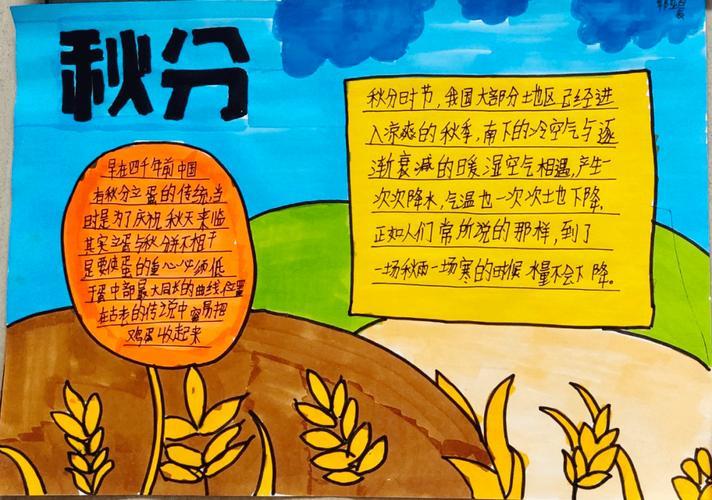 秋分
早在四千年前中国
有秋分立蛋的传统,当
时是为了庆祝秋天来临
其实立蛋与秋分并不相干
是要使蛋的重心必须低
于蛋中部最大周长的曲线位置
在古老的传说中容易把
鸡蛋收起来
秋分时节,我国大部分土地区已经进
入凉爽的秋季,南下的冷空气与逐
渐衰减的日暖湿空气相遇,产生一
次次降水,气温也一次次土地下降,
正如人们常所说的那样,到了
一场秋雨一场寒的时候 水量不会下降。